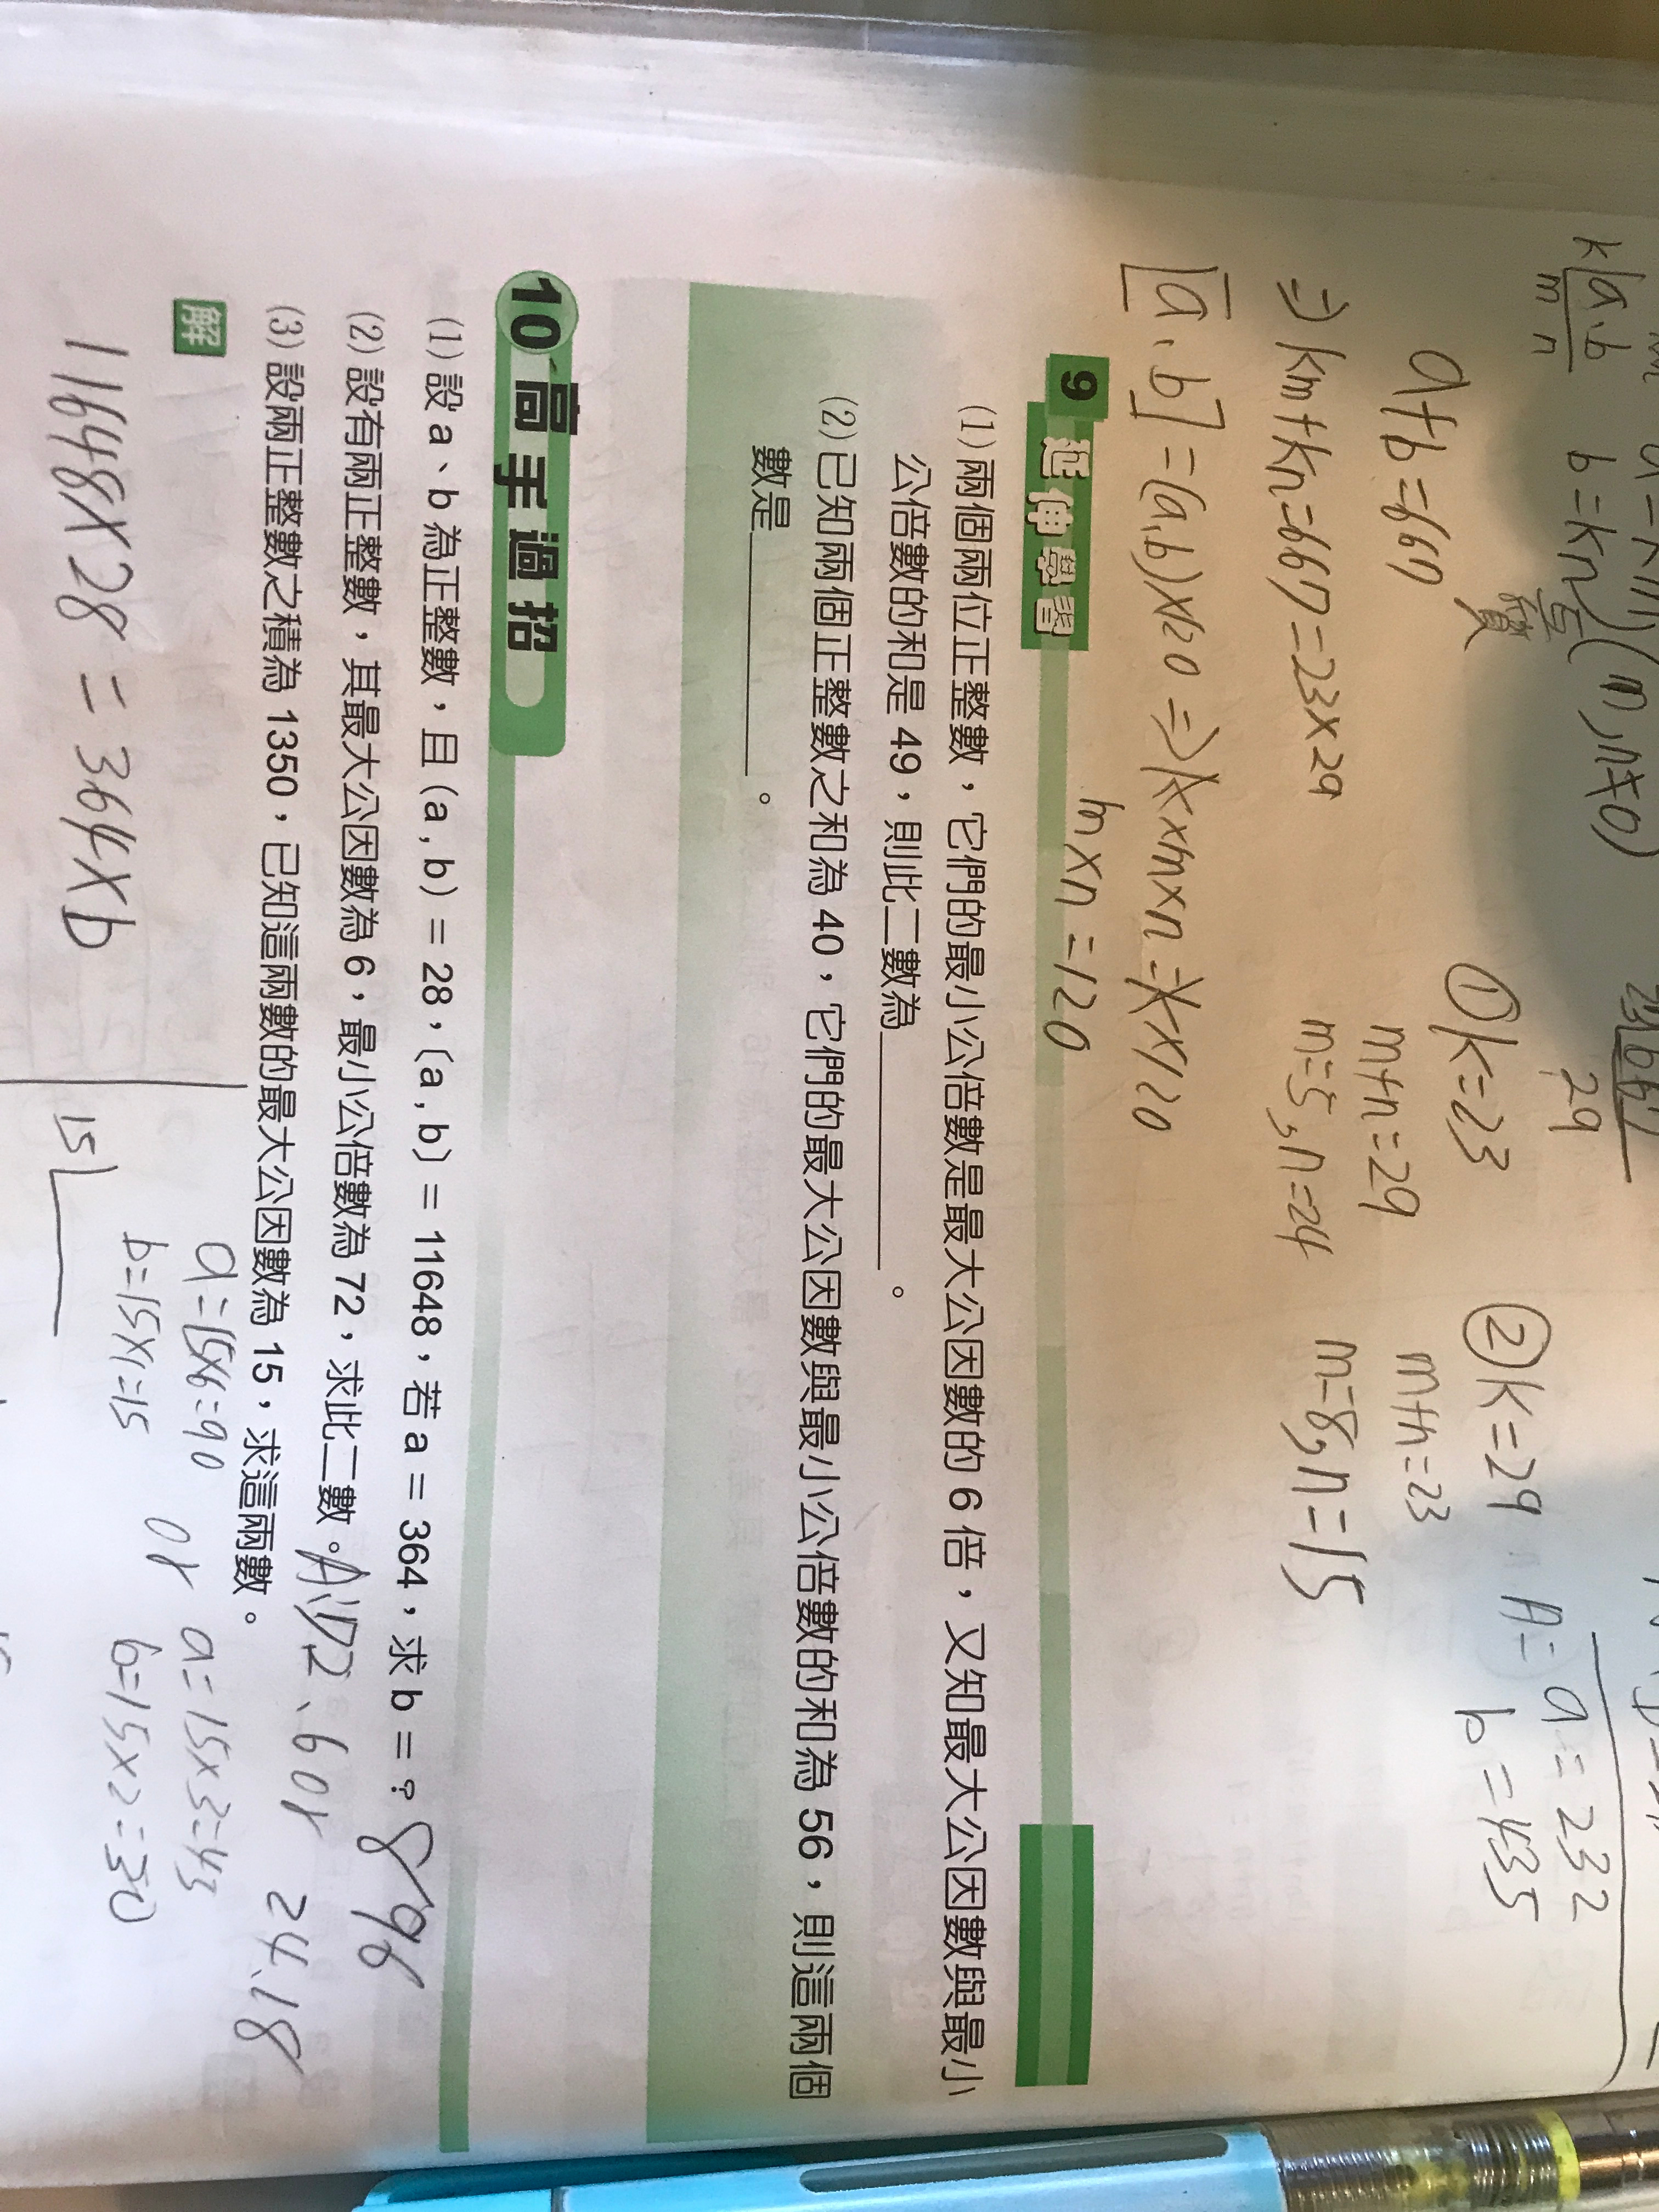 k|a、b
m n
b=kn
互質
(m,n≠0)
a+b=667
⇒km+kn=667=23×29
[a、b]=(a,b)×120⇒k×m×n=k×120
m×n=120
29
①k=23
m+n=29
m=5,n=24
②k=29
m+n=23
m=8,n=15
A=a=232
b=435
9 延伸學習
(1)兩個兩位正整數,它們的最小公倍數是最大公因數的 6 倍,又知最大公因數與最小
公倍數的和是 49,則此二數為______。
(2)已知兩個正整數之和為 40,它們的最大公因數與最小公倍數的和為 56,則這兩個
數是______。
10 高手過招
(1)設 a、b 為正整數,且(a , b)= 28,〔a , b〕= 11648,若 a = 364,求 b = ? 896
(2)設有兩正整數,其最大公因數為 6,最小公倍數為 72,求此二數。A:72、6 or 24、18
(3)設兩正整數之積為 1350,已知這兩數的最大公因數為 15,求這兩數。
解
11648×28=364×b
15
a=15×6=90
b=15×1=15
or
a=15×3=45
b=15×2=30